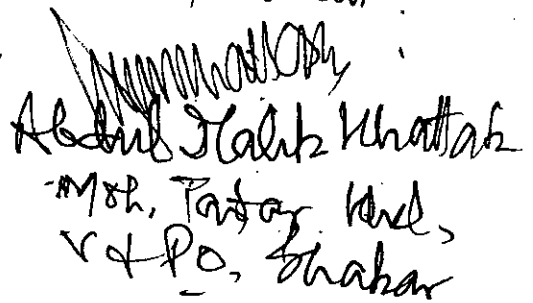 Abdul Malik Khattak
Moh, Tatar Khel,
V & PO, Shakar